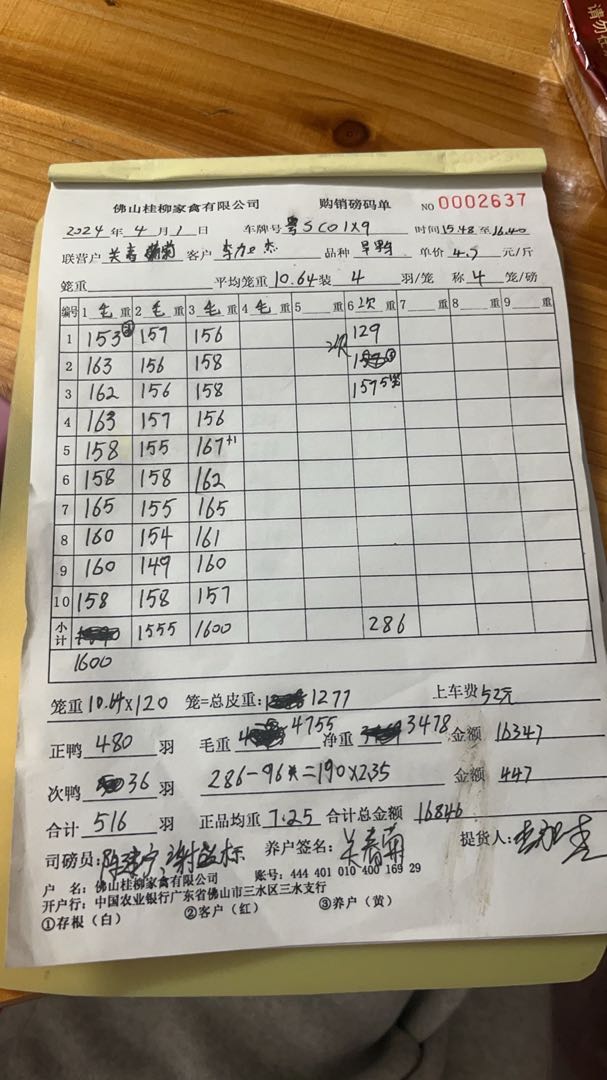 请勿在
佛山桂柳家禽有限公司 购销磅码单 NO 0002637
2024年4月1日 车牌号 粤SC01X9 时间15.48至16.40
联营户 关青 客户 品种 旱鸭 单价4.7元/斤
笼重 平均笼重10.64装4羽/笼 称4笼/磅
编号 1毛重 2毛重 3毛重 4毛重 5重 6次重 7重 8重 9重
1 153 157 156 129
2 163 156 158 2次
3 162 156 158 157
4 163 157 156
5 158 155 167+1
6 158 158 162
7 165 155 165
8 160 154 161
9 160 149 160
10 158 158 157
小计 1555 1600 286
1600
笼重10.64×120笼=总皮重:1277 上车费52元
正鸭480羽 毛重4755净重3478 金额16347
次鸭36羽 286-96=190×2.35 金额447
合计516羽 正品均重7.25 合计总金额16846
司磅员: 养户签名:关青菊 提货人:
户 名:佛山桂柳家禽有限公司 账号:444 401 010 400 169 29
开户行:中国农业银行广东省佛山市三水区三水支行
①存根(白) ②客户(红) ③养户(黄)